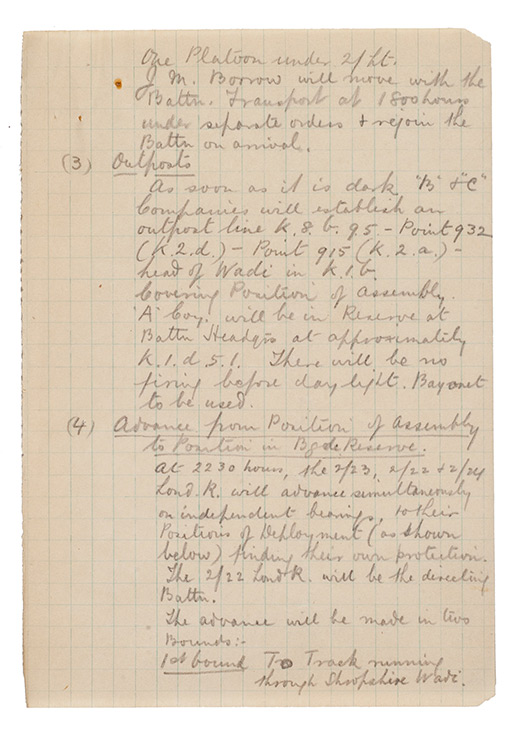 One Platoon under 2/Lt.
J. M. Borrow will move with the
Battn. Transport at 1800 hours
under separate orders + rejoin the
Battn on arrival.
(3) Outposts
As soon as it is dark "B" + "C"
Companies will establish an
outpost line K.8.b.9.5. - Point 932
(K.2.d.) - Point 915 (K.2.a.) -
head of Wadi in K.1.b.
Covering Position of Assembly.
'A' Coy. will be in Reserve at
Battn Headqrs at approximately
K.1.d.5.1. There will be no
firing before daylight. Bayonet
to be used.
(4) Advance from Position of Assembly
to Position in Bgde Reserve.
At 2230 hours, the 2/23, 2/22 + 2/24
Lond. R. will advance simultaneously
on independent bearings, to their
Positions of Deployment (as shown
below) finding their own protection.
The 2/22 Lond R. will be the directing
Battn.
The advance will be made in two
Bounds:-
1st bound To Track running
through Shropshire Wadi.